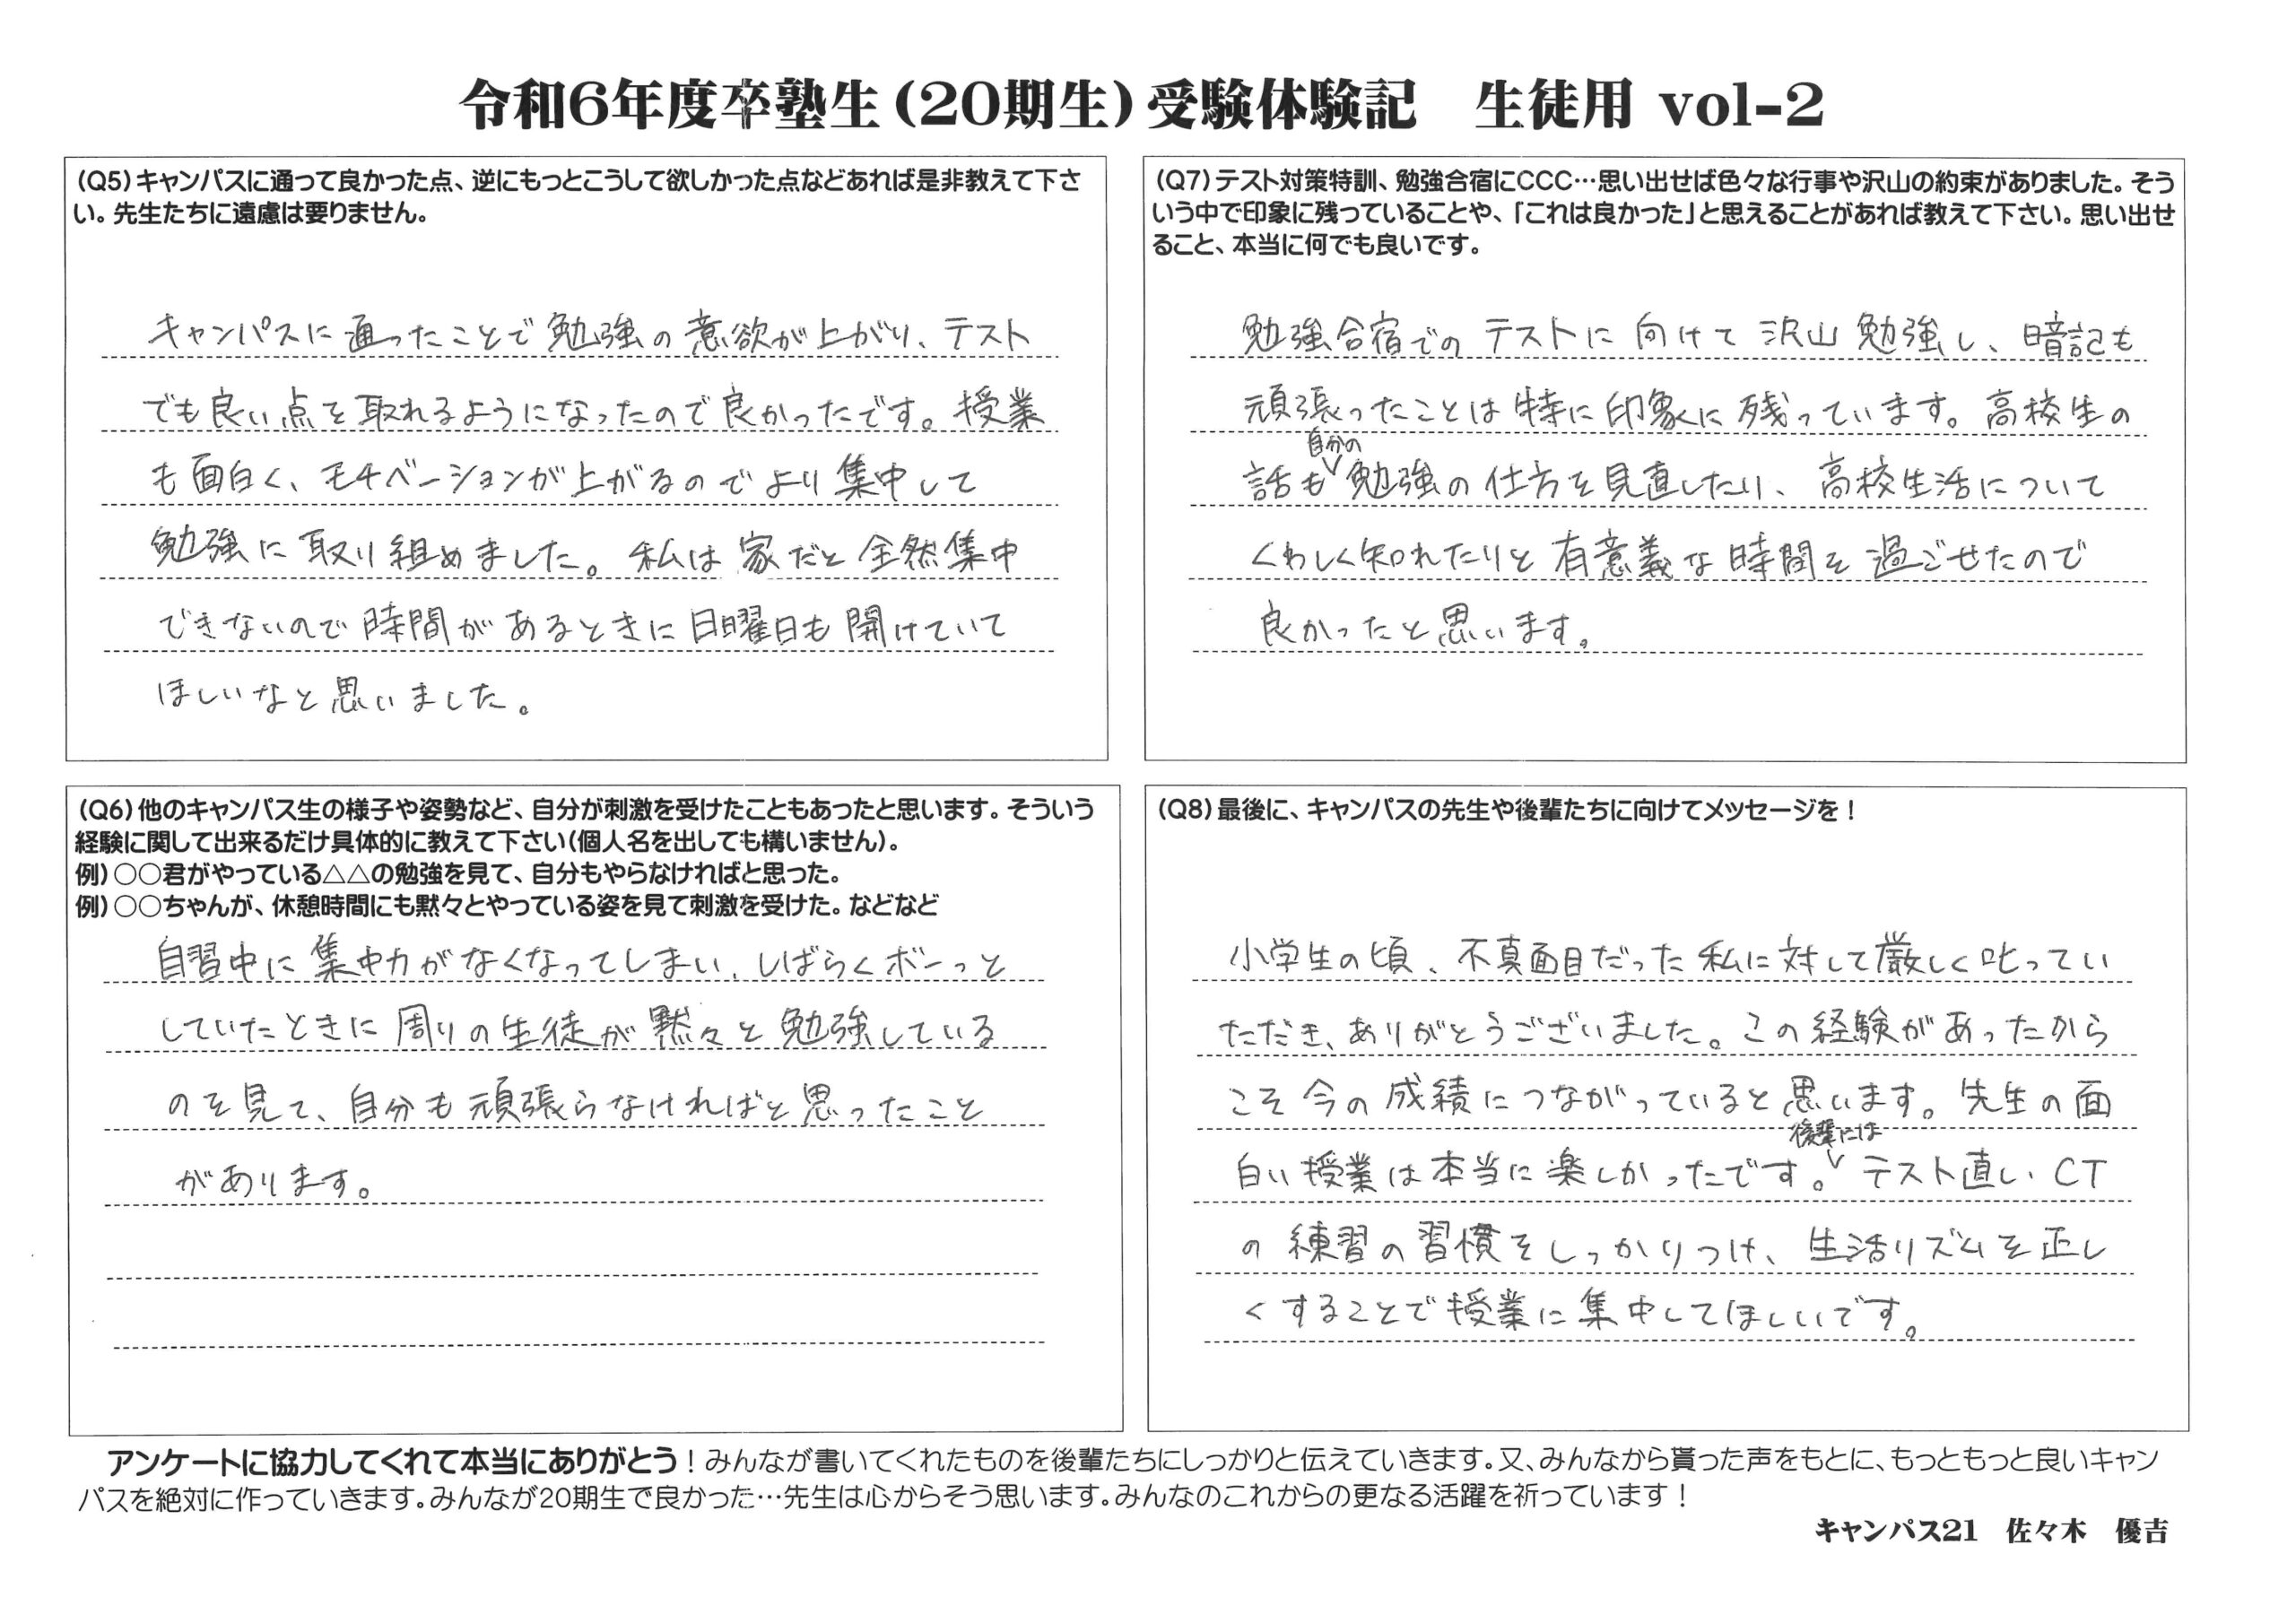 令和6年度卒塾生（20期生）受験体験記　生徒用 vol-2
（Q5）キャンパスに通って良かった点、逆にもっとこうして欲しかった点などあれば是非教えて下さ
い。先生たちに遠慮は要りません。
キャンパスに通ったことで勉強の意欲が上がり、テスト
でも良い点を取れるようになったので良かったです。授業
も面白く、モチベーションが上がるのでより集中して
勉強に取り組めました。私は家だと全然集中
できないので時間があるときに日曜日も開けていて
ほしいなと思いました。
（Q6）他のキャンパス生の様子や姿勢など、自分が刺激を受けたこともあったと思います。そういう
経験に関して出来るだけ具体的に教えて下さい（個人名を出しても構いません）。
例）○○君がやっている△△の勉強を見て、自分もやらなければと思った。
例）○○ちゃんが、休憩時間にも黙々とやっている姿を見て刺激を受けた。などなど
自習中に集中力がなくなってしまい、しばらくボーっと
していたときに周りの生徒が黙々と勉強している
のを見て、自分も頑張らなければと思ったこと
があります。
（Q7）テスト対策特訓、勉強合宿にCCC…思い出せば色々な行事や沢山の約束がありました。そう
いう中で印象に残っていることや、「これは良かった」と思えることがあれば教えて下さい。思い出せ
ること、本当に何でも良いです。
勉強合宿でのテストに向けて沢山勉強し、暗記も
頑張ったことは特に印象に残っています。高校生の
自分の
話も勉強の仕方を見直したり、高校生活について
くわしく知れたりと有意義な時間を過ごせたので
良かったと思います。
（Q8）最後に、キャンパスの先生や後輩たちに向けてメッセージを！
小学生の頃、不真面目だった私に対して厳しく叱ってい
ただき、ありがとうございました。この経験があったから
こそ今の成績につながっていると思います。先生の面
後輩には
白い授業は本当に楽しかったです。テスト直し、CT
の練習の習慣をしっかりつけ、生活リズムを正し
くすることで授業に集中してほしいです。
アンケートに協力してくれて本当にありがとう！みんなが書いてくれたものを後輩たちにしっかりと伝えていきます。又、みんなから貰った声をもとに、もっともっと良いキャン
パスを絶対に作っていきます。みんなが20期生で良かった…先生は心からそう思います。みんなのこれからの更なる活躍を祈っています！
キャンパス21　佐々木　優吉